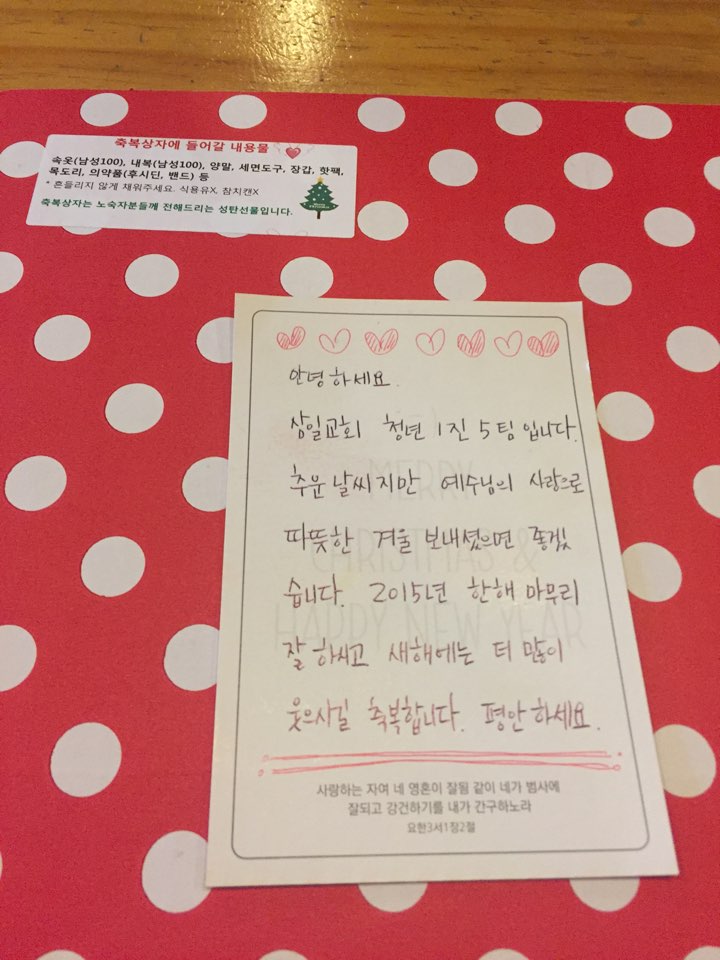 축복상자에 들어갈 내용물
속옷(남성100), 내복(남성100), 양말, 세면도구, 장갑, 핫팩,
목도리, 의약품(후시딘, 밴드) 등
* 흔들리지 않게 채워주세요. 식용유X, 참치캔X
축복상자는 노숙자분들께 전해드리는 성탄선물입니다.
안녕하세요.
삼일교회 청년 1진 5팀입니다.
추운 날씨지만 예수님의 사랑으로
따뜻한 겨울 보내셨으면 좋겠
습니다. 2015년 한해 마무리
잘 하시고 새해에는 더 많이
웃으시길 축복합니다. 평안하세요.
MERRY
CHRISTMAS &
HAPPY NEW YEAR
사랑하는 자여 네 영혼이 잘됨 같이 네가 범사에
잘되고 강건하기를 내가 간구하노라
요한3서1장2절